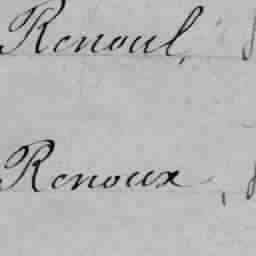 Renoul,
Renoux,